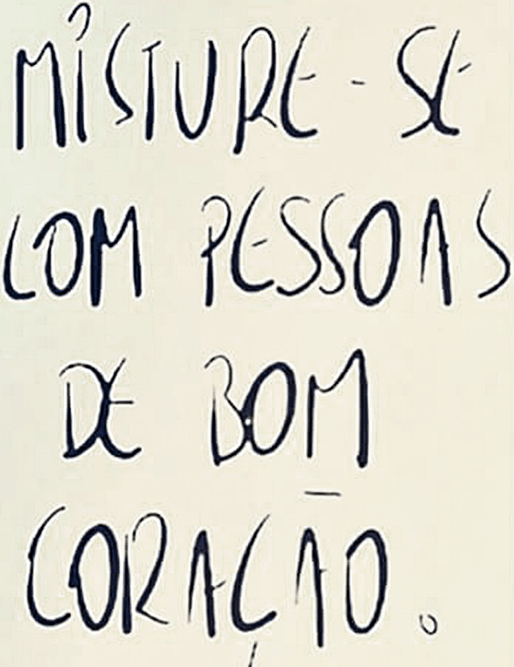 MISTURE-SE
COM PESSOAS
DE BOM
CORAÇÃO.